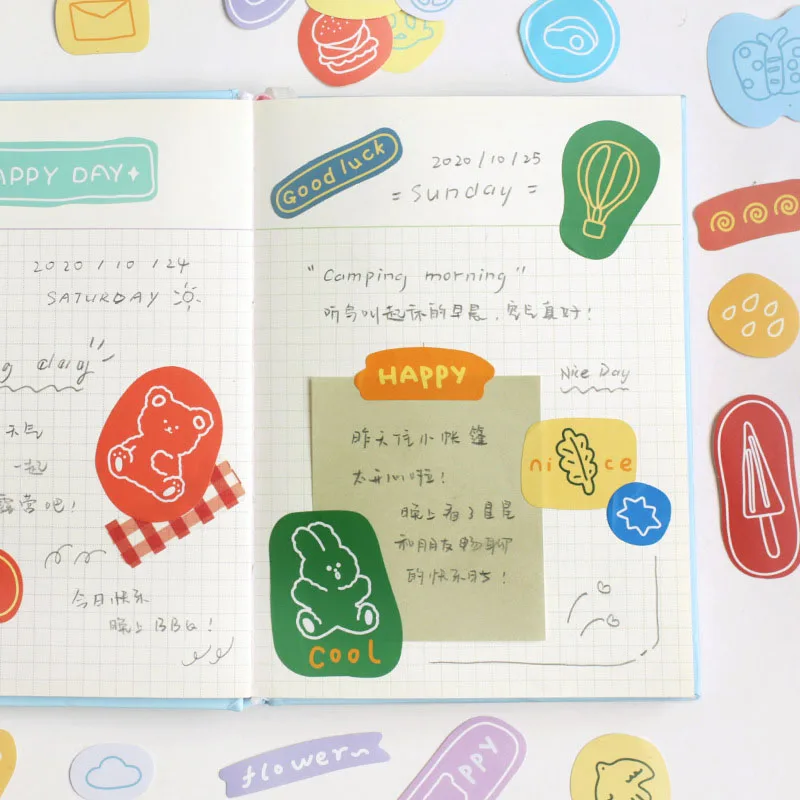 APPY DAY
2020/10/24
SATURDAY
g day"
天气
一起
露营吧!
今日快乐
晚上BBQ!
Good luck
2020/10/25
= Sunday =
"Camping morning"
听鸟叫起床的早晨,空气真好!
HAPPY
Nice Day
昨天住小帐篷
太开心啦!
晚上看了星星
和朋友畅聊
的快乐时!
nice
COOL
flower
PPY